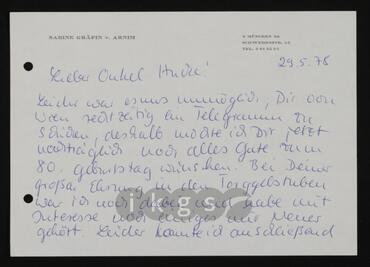 SABINE GRÄFIN v. ARNIM
8 MÜNCHEN
SCHWEDENSTR.
TEL.
29.5.78
Lieber Onkel
Leider war es uns unmöglich, Dir von
Wien rechtzeitig ein Telegramm zu
schicken, deshalb möchte ich Dir jetzt
nachträglich noch alles Gute zum
80. Geburtstag wünschen. Bei Deiner
großen Ehrung in den Torggelstuben
war ich noch dabei und habe mit
Interesse noch einiges mir Neues
gehört. Leider konnte ich anschließend
ikgs